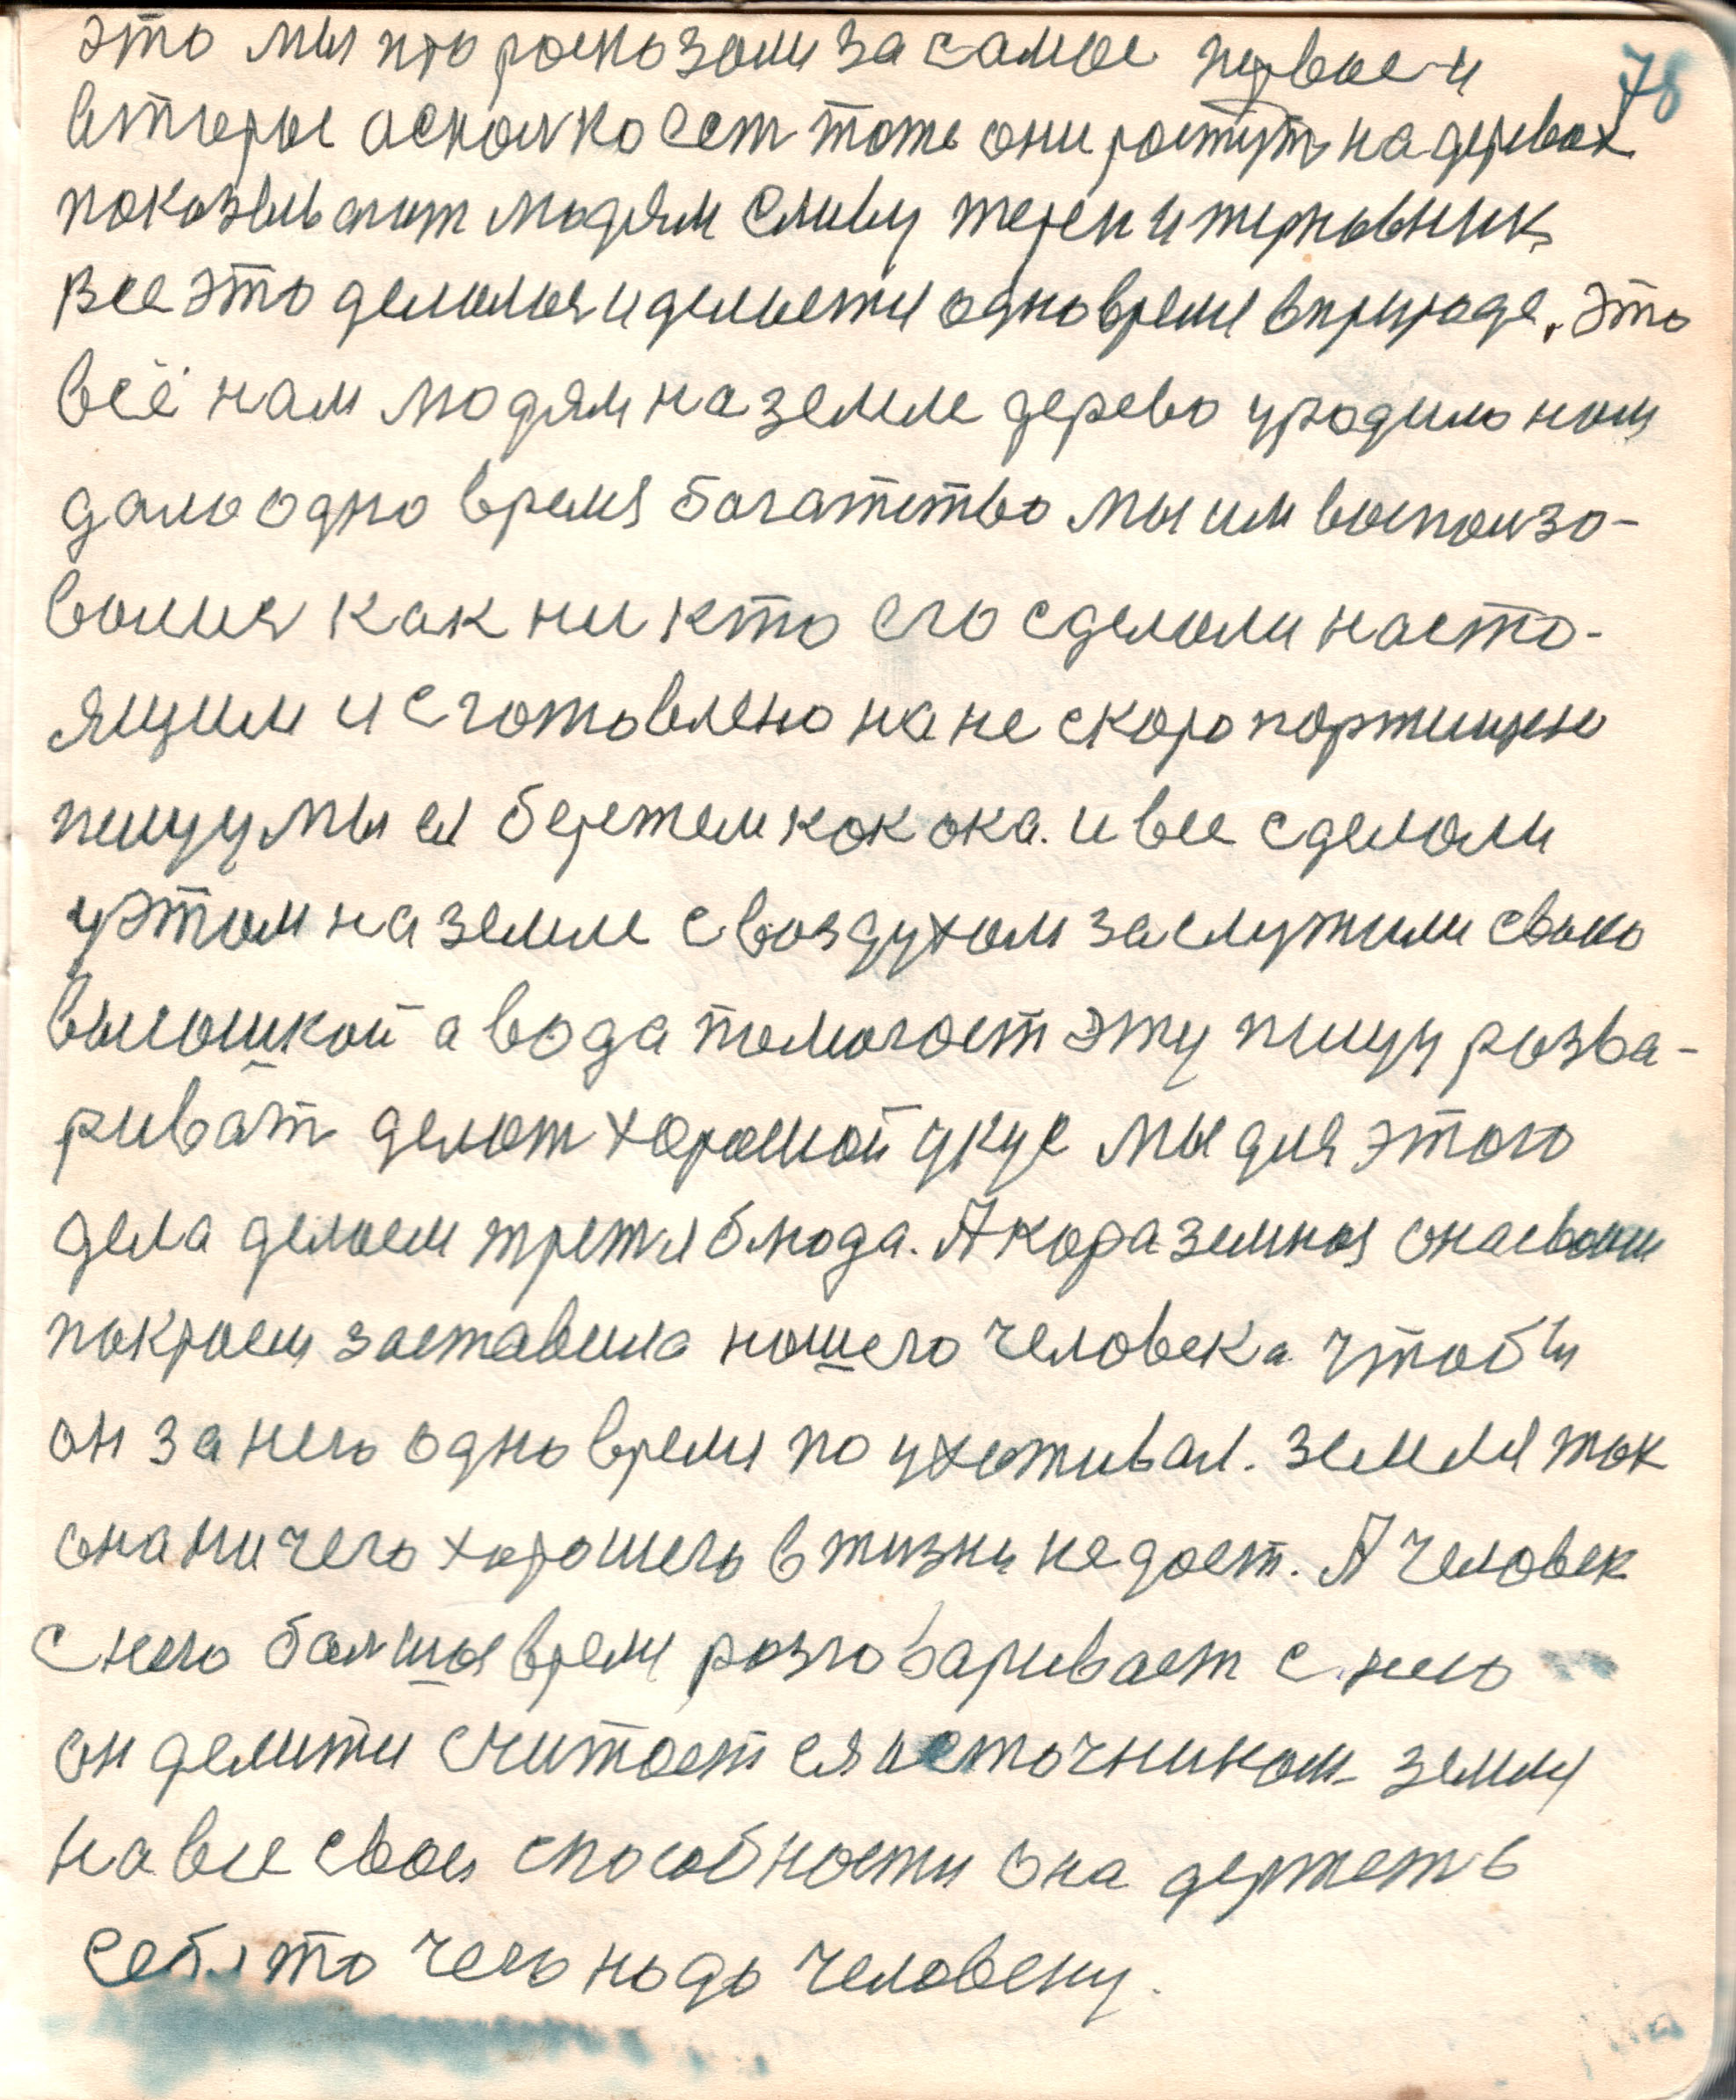 это мы что росказали за самое первое и 78
вторые асколко ест тоже они ростут на деревах
показывают людям сливу терен и терновник
все это делалося и делается одно время в природе. Это
всё нам людям на земле дерево уродило нам
дало одно время богатство мы им воспользо-
валися как ни кто его сделали насто-
ящим и сготовлено на не скоро портищую
пищу мы ея бережем как ока. и все сделали
у этом на земле с воздухом заслужили свою
высошкой а вода помогает эту пищу розва-
риват делат хороший укус мы для этого
дела делаем третя блюда. А кора земная она своим
покроем заставила нашего человека чтобы
он за нею одно время по ухаживал. земля так
она ни чего хорошего в жизни не дает. А человек
с нею большоя время розговаривает с нею
он делится считает ея источником земля
на все свои способности она держет в
себе то чего надо человеку.